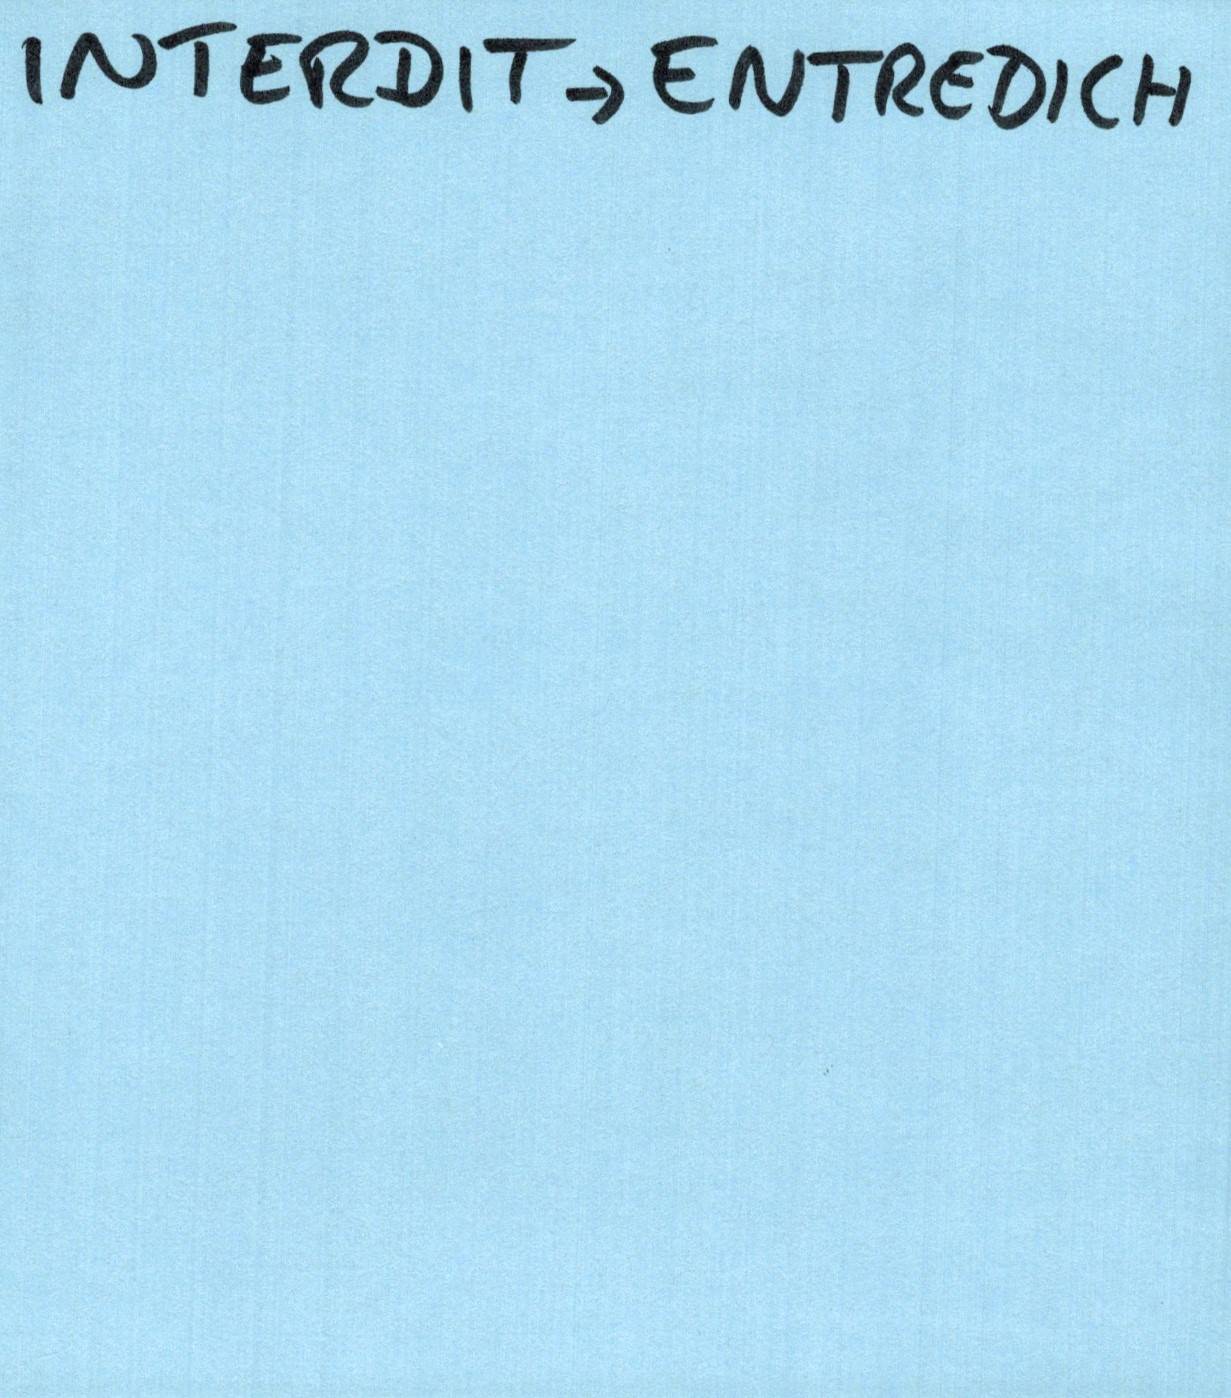 INTERDIT → ENTREDICH